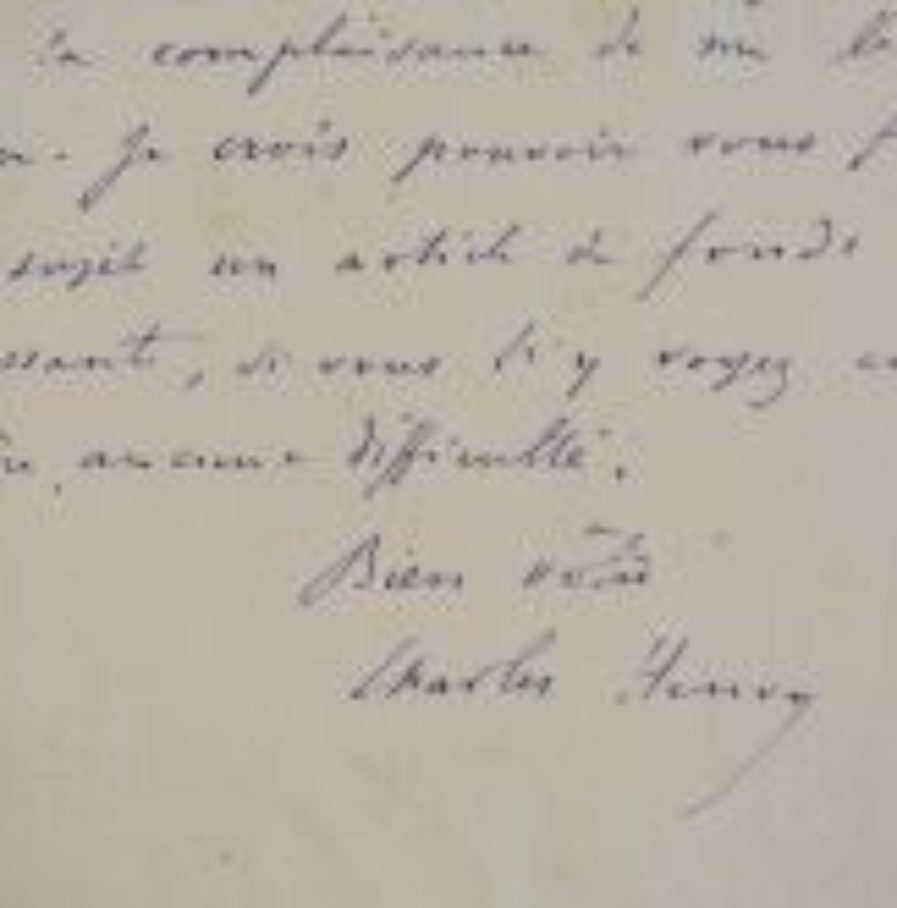 la complaisance de me
Je crois pouvoir vous
sujet un article de fonds
ssant, si vous n'y voyez
aucune difficulté.
Bien vôtre
Charles Henry